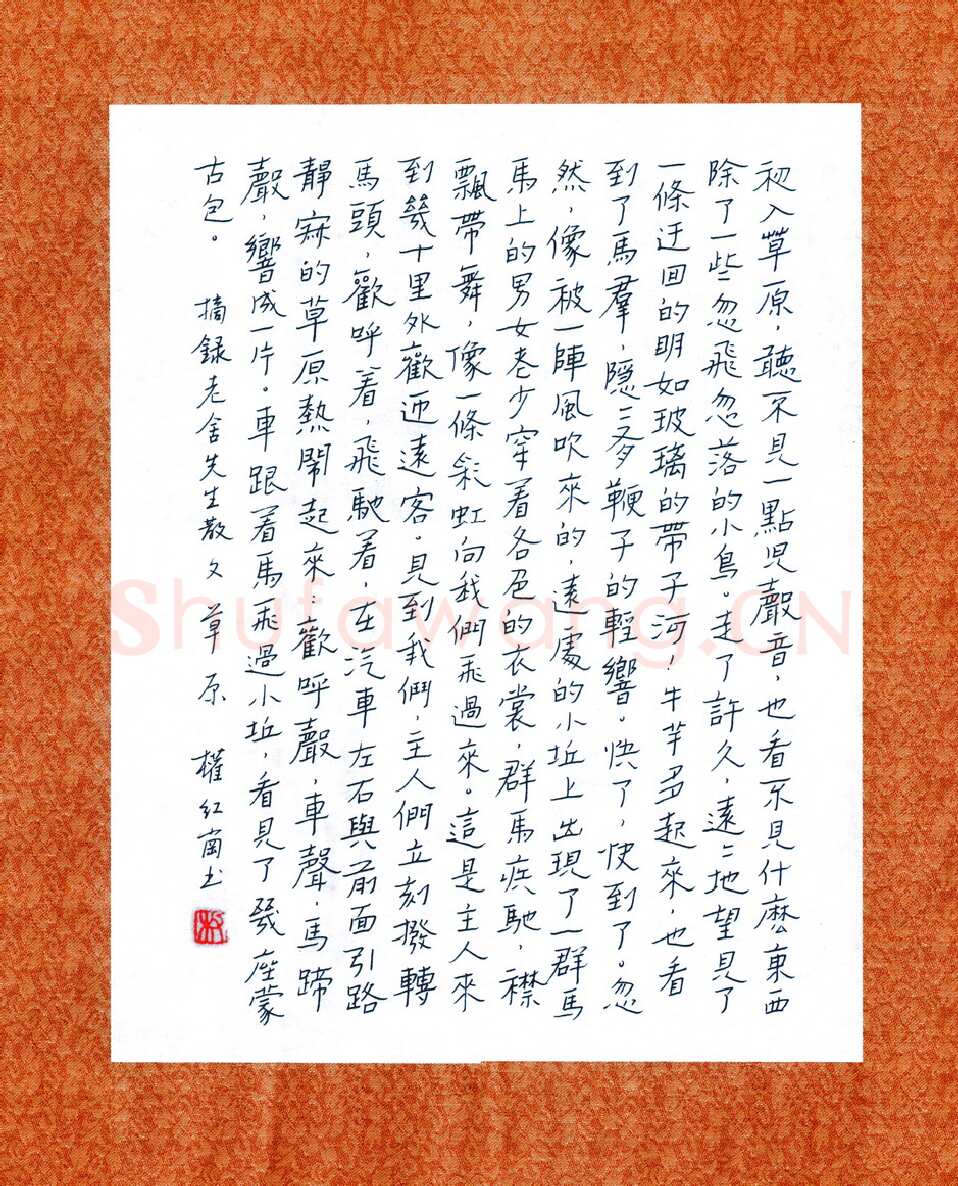 初入草原，聽不見一點児聲音，也看不見什麽東西
除了一些忽飛忽落的小鳥。走了許久，遠〻地望見了
一條迂回的明如玻璃的帶子河！牛羊多起來，也看
到了馬羣，隱〻有鞭子的輕響。快了，快到了。忽
然，像被一陣風吹來的，遠處的小丘上出現了一群馬
馬上的男女老少穿着各色的衣裳，群馬疾馳，襟
飄帶舞，像一條彩虹向我們飛過來。這是主人來
到幾十里外歡迎遠客。見到我們，主人們立刻撥轉
馬頭，歡呼着，飛馳着，在汽車左右與前面引路
靜寂的草原熱鬧起來：歡呼聲，車聲，馬蹄
聲，響成一片。車跟着馬飛過小丘，看見了幾座蒙
古包。 摘錄老舍先生散文草原 權紅南书
Shufawang.CN